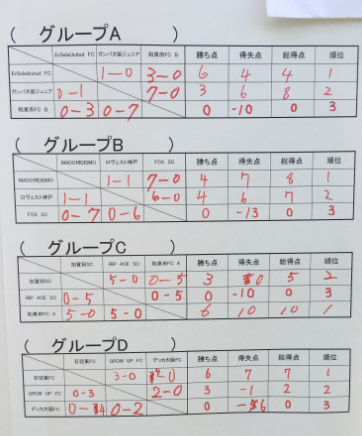 ( グループA )
ErSeleUnited FC ガンバ大阪ジュニア 和泉市FC B 勝ち点 得失点 総得点 順位
ErSeleUnited FC 1-0 3-0 6 4 4 1
ガンバ大阪ジュニア 0-1 7-0 3 6 8 2
和泉市FC B 0-3 0-7 0 -10 0 3
( グループB )
MADORDISMO ロヴェスト神戸 FOX SC 勝ち点 得失点 総得点 順位
MADORDISMO 1-1 7-0 4 7 8 1
ロヴェスト神戸 1-1 6-0 4 6 7 2
FOX SC 0-7 0-6 0 -13 0 3
( グループC )
加賀田SC RIP ACE SC 和泉市FC A 勝ち点 得失点 総得点 順位
加賀田SC 5-0 0-5 3 0 5 2
RIP ACE SC 0-5 0-5 0 -10 0 3
和泉市FC A 5-0 5-0 6 10 10 1
( グループD )
石切東FC GROW UP FC デッカ大阪FC 勝ち点 得失点 総得点 順位
石切東FC 3-0 6 7 7 1
GROW UP FC 0-3 2-0 3 -1 2 2
デッカ大阪FC 0-4 0-2 0 -6 0 3